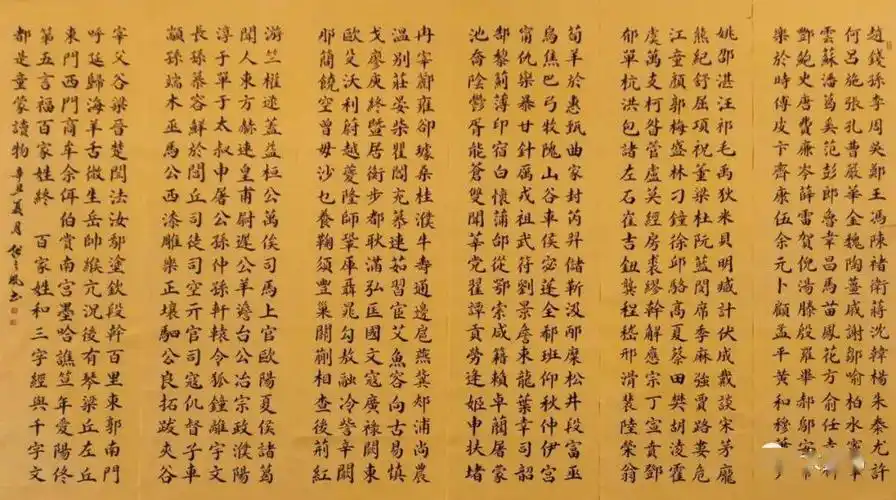 趙錢孫李周吳鄭王馮陳褚衛蔣沈韓楊朱秦尤許
何呂施張孔曹嚴華金魏陶薑戚謝鄒喻柏水竇
雲蘇潘葛奚范彭郎魯韋昌馬苗鳳花方俞任袁
酆鮑史唐費廉岑薛雷賀倪湯滕殷羅畢郝鄔安
樂於時傅皮卞齊康伍余元卜顧孟平黃和穆蕭尹
姚邵湛汪祁毛禹狄米貝明臧計伏成戴談宋茅龐
熊紀舒屈項祝董梁杜阮藍閔席季麻強賈路婁危
江童顏郭梅盛林刁鐘徐邱駱高夏蔡田樊胡凌霍
虞萬支柯昝管盧莫經房裘繆幹解應宗丁宣賁鄧
郁單杭洪包諸左石崔吉鈕龔程嵇邢滑裴陸榮翁
荀羊於惠甄曲家封芮羿儲靳汲邴糜松井段富巫
烏焦巴弓牧隗山谷車侯宓蓬全郗班仰秋仲伊宮
甯仇欒暴甘鈄厲戎祖武符劉景詹束龍葉幸司韶
郜黎薊薄印宿白懷蒲邰從鄂索咸籍賴卓藺屠蒙
池喬陰鬱胥能蒼雙聞莘党翟譚貢勞逄姬申扶堵
冉宰酈雍卻璩桑桂濮牛壽通邊扈燕冀郟浦尚農
溫別莊晏柴瞿閻充慕連茹習宦艾魚容向古易慎
戈廖庾終暨居衡步都耿滿弘匡國文寇廣祿闕東
歐殳沃利蔚越夔隆師鞏厙聶晁勾敖融冷訾辛闞
那簡饒空曾毋沙乜養鞠須豐巢關蒯相查後荊紅
游竺權逯蓋益桓公萬俟司馬上官歐陽夏侯諸葛
聞人東方赫連皇甫尉遲公羊澹台公冶宗政濮陽
淳于單于太叔申屠公孫仲孫軒轅令狐鍾離宇文
長孫慕容鮮於閭丘司徒司空亓官司寇仉督子車
顓孫端木巫馬公西漆雕樂正壤駟公良拓跋夾谷
宰父谷梁晉楚閆法汝鄢塗欽段幹百里東郭南門
呼延歸海羊舌微生岳帥緱亢況後有琴梁丘左丘
東門西門商牟佘佴伯賞南宮墨哈譙笪年愛陽佟
第五言福百家姓終 百家姓和三字經與千字文
都是童蒙讀物 辛丑夏月